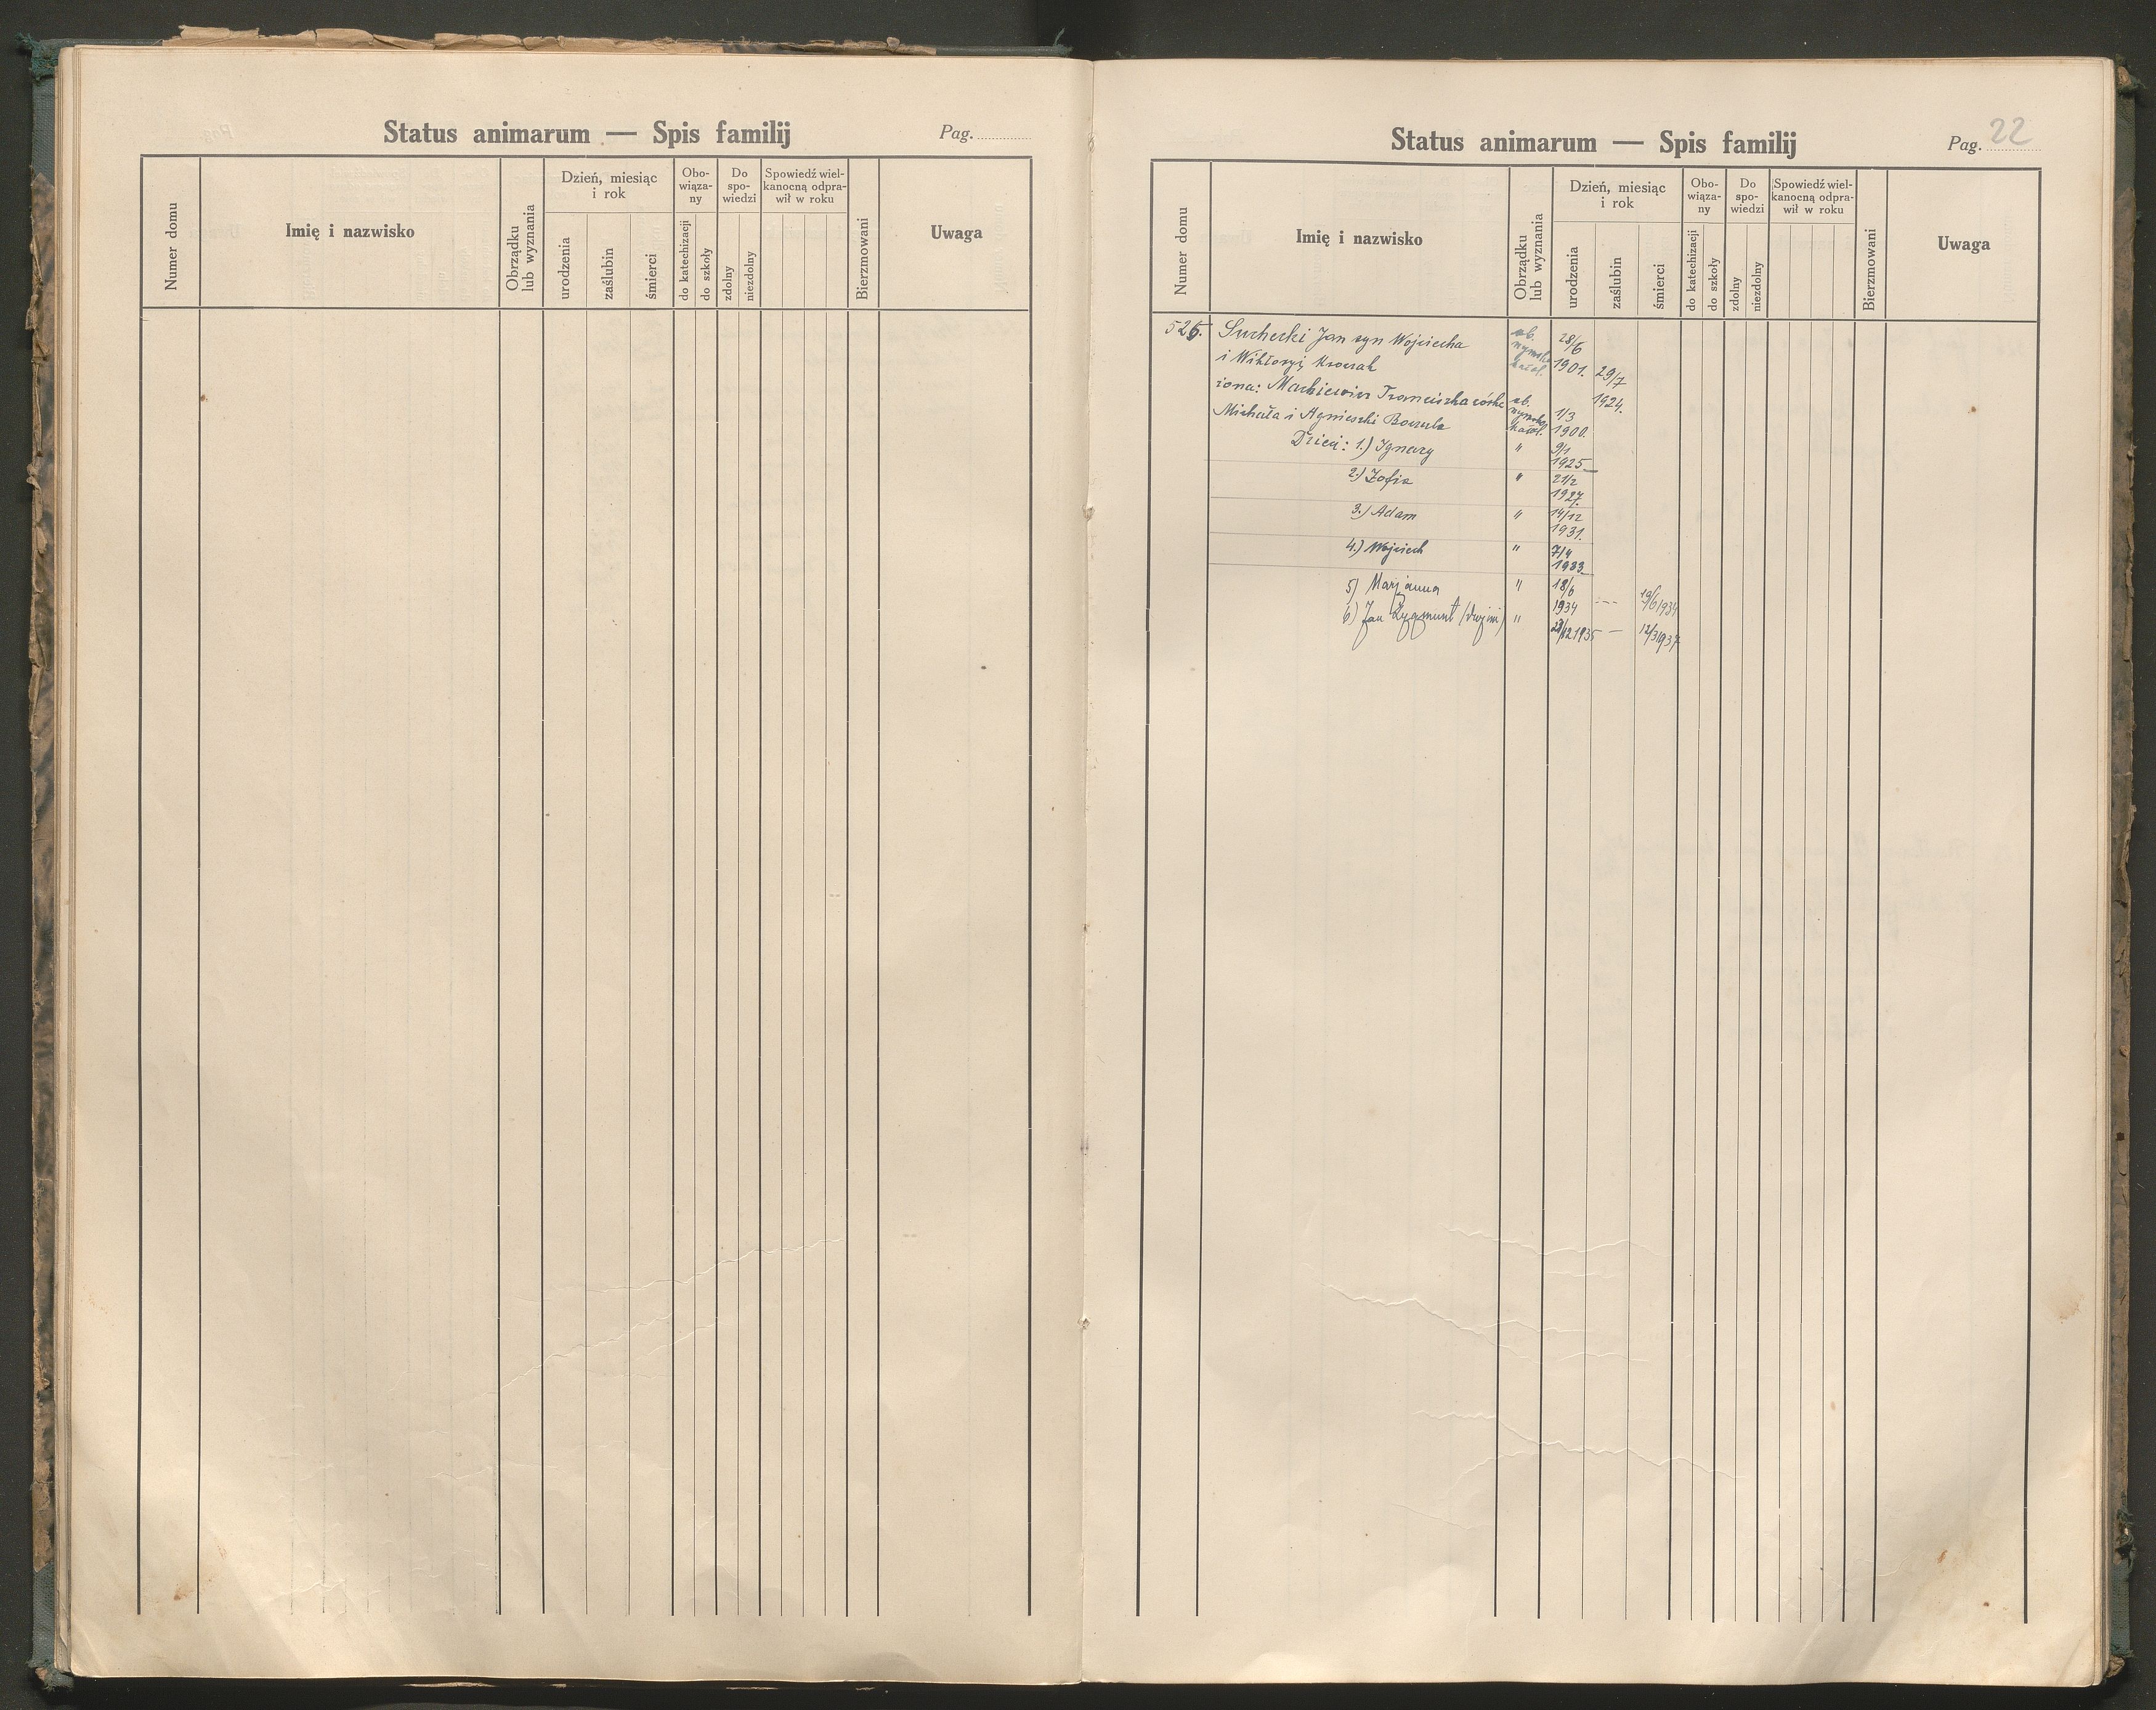 Status animarum — Spis familij
Pag.
Numer domu
Imię i nazwisko
Obrządku lub wyznania
Dzień, miesiąc i rok
urodzenia
zaślubin
śmierci
Obo-
wiąza-
ny
do katechizacji
do szkoły
Do
spo-
wiedzi
zdolny
niezdolny
Spowiedź wiel-
kanocną odpra-
wił w roku
Bierzmowani
Uwaga
Status animarum — Spis familij
Pag. 22
Numer domu
Imię i nazwisko
Obrządku lub wyznania
Dzień, miesiąc i rok
urodzenia
zaślubin
śmierci
Obo-
wiąza-
ny
do katechizacji
do szkoły
Do
spo-
wiedzi
zdolny
niezdolny
Spowiedź wiel-
kanocną odpra-
wił w roku
Bierzmowani
Uwaga
Suchecki Jan syn Wojciecha ob. 28/6
i Wiktoryi rzymsk. kat. 1901. 29/7
żona: Mackiewicz Franciszka córka ob. 1924.
Michała i Agnieszki rzymsk. kat. 1/3 1900.
Dzieci: 1.) Ignacy " 9/1 1925
2.) Zofia " 21/2 1927.
3.) Adam " 14/12 1931.
4.) Wojciech " 7/4 1933
5) Marjanna " 18/6 1934 --- 19/6 1934
6) Jan Zygmunt " 12 1935 — 12/3 1937